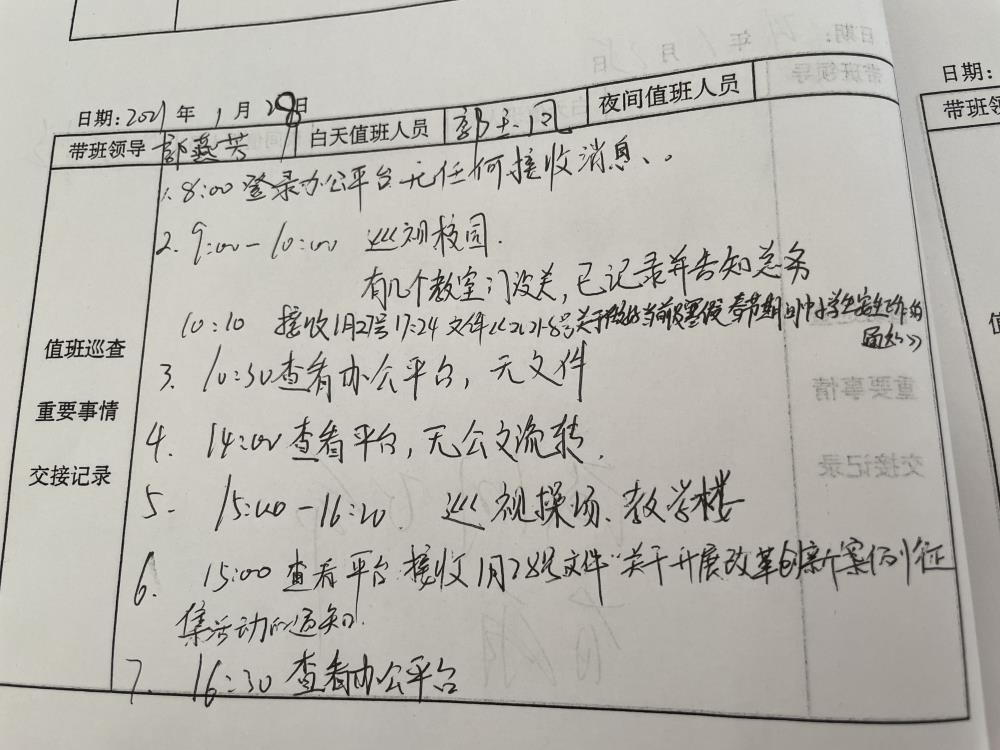 日期:2021年1月28日
带班领导 郭燕芳 白天值班人员 郭天风 夜间值班人员
1. 8:00 登录办公平台 无任何接收消息..
2. 9:00-10:00 巡视校园.
有几个教室门没关,已记录并告知总务
10:10 接收1月27号17:24文件《2021-8号关于做好当前及寒假春节期间中小学生安全工作的
通知》
值班巡查
重要事情
交接记录
3. 10:30查看办公平台,无文件
4. 14:00查看平台,无公文流转.
5. 15:00-16:20. 巡视操场、教学楼
6. 15:00 查看平台 接收1月28号文件"关于开展改革创新案例征
集活动的通知.
7. 16:30 查看办公平台
日期:
带班领